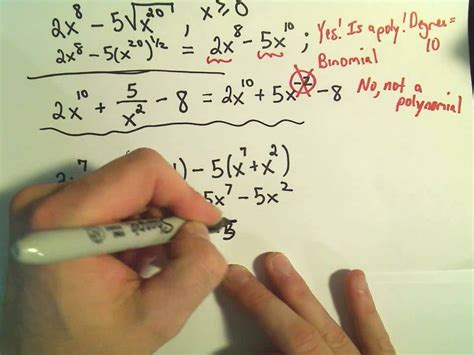 2x⁸ - 5√x²⁰ , x ≥ 0
2x⁸ - 5(x²⁰)^(1/2) = 2x⁸ - 5x¹⁰ ; Yes! Is a poly! Degree = 10
Binomial
2x¹⁰ + 5/x² - 8 = 2x¹⁰ + 5x⁻² - 8 No, not a polynomial
) - 5(x⁷ + x²)
5x⁷ - 5x²
- 5
Sharpie